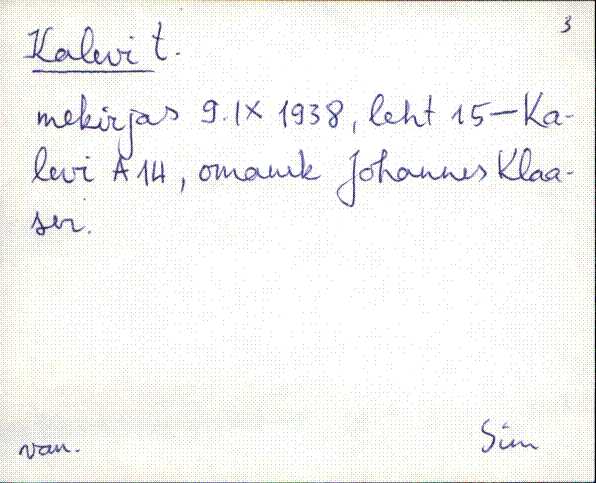 3
Kalevi t.
mekirjas 9.IX 1938, leht 15 – Ka-
levi A 14, omanik Johannes Klaa-
sen.
van. Sim